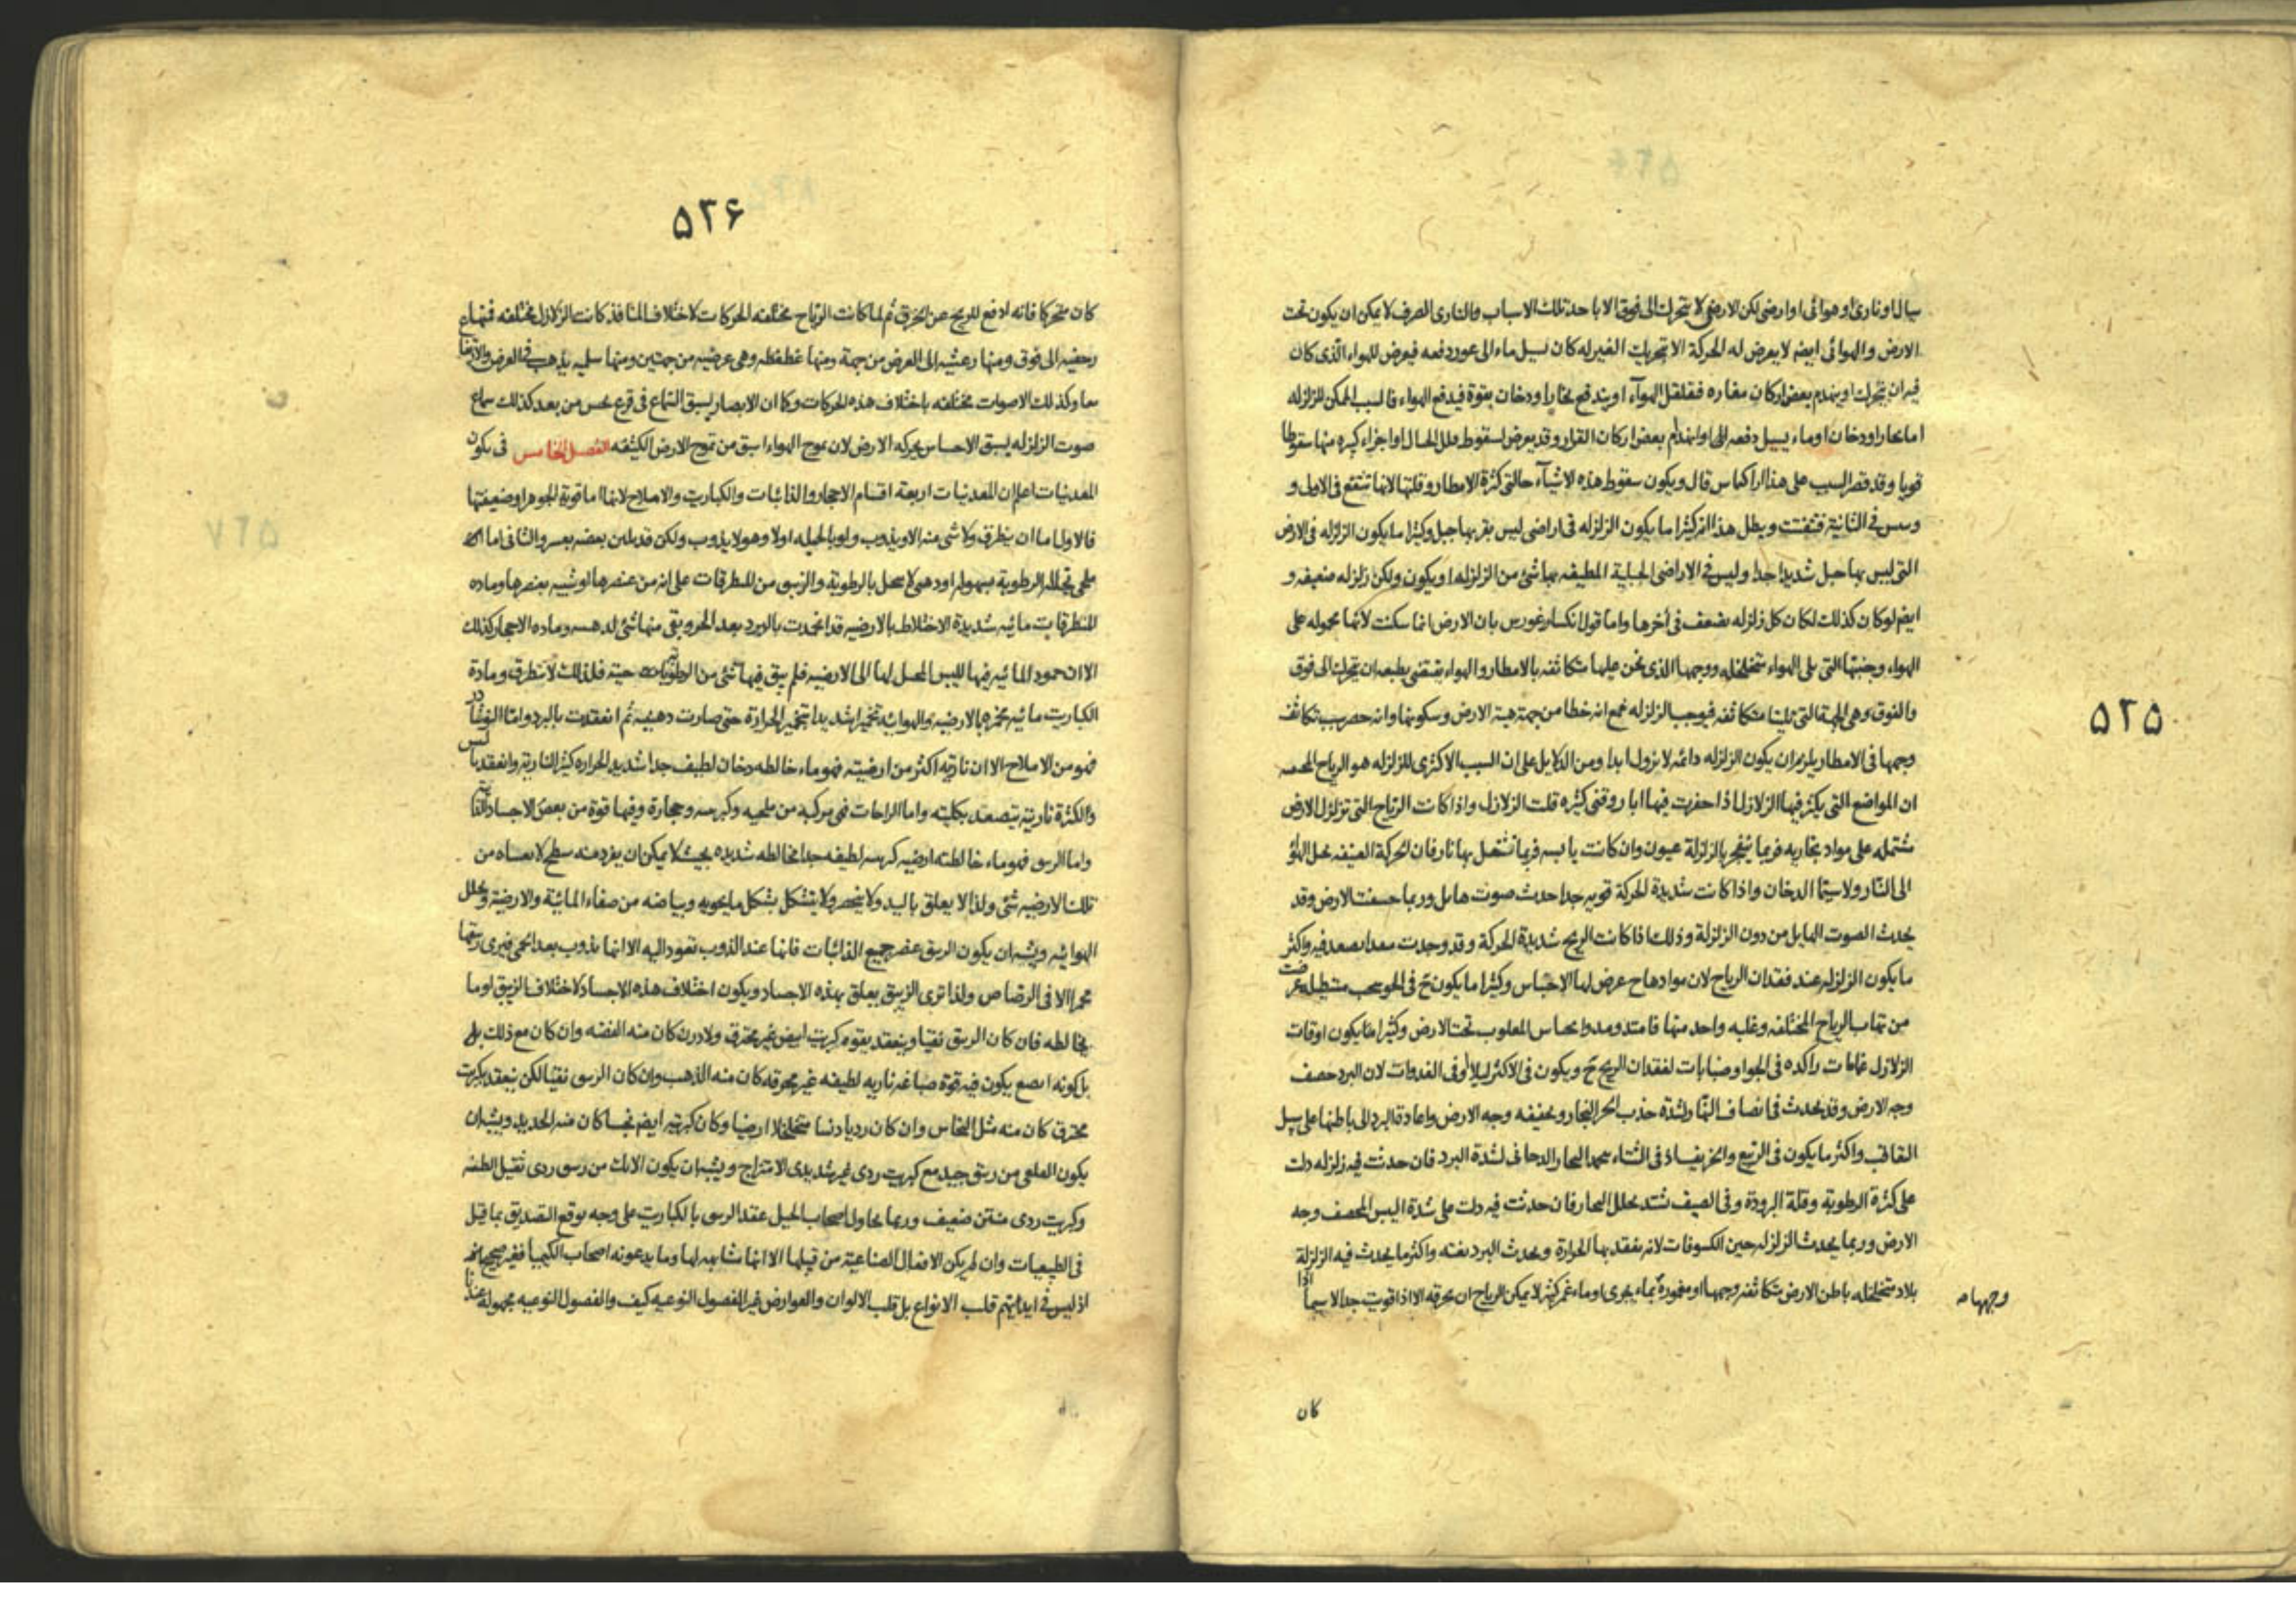 ۵۲۵
سيال او ناری او هوائی او ارضی لكن الارضی لا يتحرك الی فوق الا باحد تلك الاسباب والناری الصرف لا يمكن ان يكون تحت
الارض والهوائی ايضه لا يعرض له الحركة الا بتحريك الغير له كان يسيل ماء الی غور دفعه فيعرض للهواء الذی كان
فيه ان يتحرك او ينهدم بعض اركان مغاره فقلقل الهوآء او يندفع بخارا و دخان بقوة فيدفع الهواء فالسبب الممكن للزلزله
اما بخار او دخان او ماء يسيل دفعه او انهدام بعض اركان القرار وقد يعرض لسقوط قلل الجبال او اجزاء كبيره منها سقوطا
قويا وقد قصر السبب علی هذا قال ويكون سقوط هذه الاشيآء حالتی كثرة الامطار وقلتها لانها تنتقع فی الاول و
فی الثانية فتفتت ويبطل هذا انه كثيرا ما يكون الزلزله فی اراضی ليس بقربها جبل وكثيرا ما يكون الزلزله فی الارض
التی ليس بها جبل شديدا جدا وليس فی الاراضی الجبلية المطيفه بها شئ من الزلزله او يكون ولكن زلزله ضعيفه و
ايضه لو كان كذلك لكان كل زلزله يضعف فی آخرها واما قول انكساغورس بان الارض انما سكنت لانها محموله علی
الهواء وجنبتها التی يلی الهواء متخلخله ووجهها الذی نحن عليها متكاثفه بالامطار والهواء يقتضی بطبعه ان يتحرك الی فوق
والفوق وهی الجهة التی تلينا متكاثفه فيوجب الزلزله فمع انه خطا من جهة هيئة الارض وسكونها وانه حصر سبب تكاثف
وجهها فی الامطار يلزم ان يكون الزلزله دائمه لا يزول ابدا ومن الدلايل علی ان السبب الاكثری للزلزله هو الرياح
ان المواضع التی يكثر فيها الزلازل اذا حفرت فيها ابار وقنی كثيره قلت الزلازل واذا كانت الرياح التی تزلزل الارض
مشتمله علی مواد بخاريه فربما ينفجر بالزلزلة عيون وان كانت يابسه فربما تشتعل بها نار فان الحركة العنيفه تحيل الهواء
الی النار ولا سيما الدخان واذا كانت شديدة الحركة قويه جدا حدث صوت هايل وربما خسفت الارض وقد
يحدث الصوت الهايل من دون الزلزلة وذلك اذا كانت الريح شديدة الحركة وقد وجدت منفذا يصعد فيه واكثر
ما يكون الزلزله عند فقدان الرياح لان موادها ح عرض لها الاحتباس وكثيرا ما يكون ح فی الجو سحب مستطيله عرضت
من تهاب الرياح المختلفه وغلبه واحد منها فامتد ومدوا بحباس المغلوب تحت الارض وكثيرا ما يكون اوقات
الزلازل غمامات راكده فی الجو او ضبابات لفقدان الريح ح ويكون فی الاكثر ليلا وفی الغدوات لان البرد حصف
وجه الارض وقد يحدث فی انصاف النهار لشدة جذب الحر البخار وتجفيفه وجه الارض واعادة البرد الی باطنها علی سبيل
التعاقب واكثر ما يكون فی الربيع والخريف اذ فی الشتاء البخار الدخانی لشدة البرد فان حدثت فيه زلزله دلت
علی كثرة الرطوبة وقلة البرودة وفی الصيف تشتد تحلل البخار فان حدثت فيه دلت علی شدة اليبس المحصف وجه
الارض وربما يحدث الزلزله حين الكسوفات لانه يفقد بها الحرارة ويحدث البرد بغته واكثر ما يحدث فيه الزلزلة
بلاد متخلخله باطن الارض متكاثفه وجهها او مغمورة بماء يجری او ماء غمر كثير لا يمكن الرياح ان يخرقه الا اذا قويت جدا لا سيما اذا
وجهها ص
كان
۵۲۶
كان متحركا فانه ادفع للريح عن الخرق ثم لما كانت الرياح مختلفه الحركات لاختلاف المنافذ كانت الزلازل مختلفه فمنها
رجفيه الی فوق ومنها رعشيه الی العرض من جهة ومنها قطقطه وهی عرضيه من جهتين ومنها سلميه يذهب فی العرض والارتفاع
معا وكذلك الاصوات مختلفه باختلاف هذه الحركات وكما ان الابصار يسبق السماع فی قرع يحس من بعد كذلك سماع
صوت الزلزله يسبق الاحساس بحركه الارض لان تموج الهواء اسبق من تموج الارض الكثيفه الفصل الخامس فی تكون
المعدنيات اعلم ان المعدنيات اربعة اقسام الاحجار والذائبات والكباريت والاملاح لانها اما قوية الجوهر او ضعيفتها
فالاول اما ان ينطرق ولا شئ منه الا ويذوب ولو بالحيله او لا وهو لا يذوب ولكن قد يلين بعضه والثانی اما
ملحی تحلله الرطوبة بسهوله او دهنی لا ينحل بالرطوبة والزيبق من المنطرقات علی انه من عنصرها او شبيه بعنصرها وماده
المنطرقات مائيه شديدة الاختلاط بالارضيه قد انجمدت بالبرد بعد الحر وبقی منها شئ وماده الاحجار كذلك
الا ان جمود المائيه فيها لليبس المحيل لها الی الارضيه فلم يبق فيها شئ من الرطوبات حية فلذلك لا تنطرق ومادة
الكباريت مائيه تخمرها بالارضيه والهوائيه تخمرا شديدا بتخمير الحرارة حتی صارت دهنيه ثم انعقدت بالبرد واما النوشادر
فهو من الاملاح الا ان ناريته اكثر من ارضيته فهو ماء خالطه دخان لطيف جدا شديد الحراره كثير الناريه وانعقد باليبس
ولكثرة ناريته يتصعد بكليته واما الزاجات فهی مركبه من ملحيه وكبريتيه وحجارة وفيها قوة من بعض الاجساد الذائبة
واما الزيبق فهو ماء خالطته ارضيه كبريتيه لطيفه جدا مخالطه شديده بحيث لا يمكن ان يفرد منه سطح لا يغشاه من
تلك الارضيه شئ ولذا لا يعلق باليد ولا ينحصر ولا يتشكل بشكل ما يحويه وبياضه من صفاء المائية والارضية وتخلل
الهوائيه ويشبه ان يكون الزيبق عنصر جميع الذائبات فانها عند الذوب تعود اليه الا انها يذوب بعد الحمی فيری
محمرا الا فی الرصاص ولذا تری الزيبق يعلق بهذه الاجساد ويكون اختلاف هذه الاجساد لاختلاف الزيبق او ما
يخالطه فان كان الزيبق نقيا وينعقد بقوه كبريت ابيض غير محترق ولا درن كان منه الفضه وان كان مع ذلك
بل كونه انصع يكون فيه قوة صباغه ناريه لطيفه غير محرقه كان منه الذهب وان كان الزيبق نقيا لكن ينعقد بكبريت
محترق كان منه مثل النحاس وان كان رديا دنسا متخلخلا ارضيا وكان كبريته ايضه نجسا كان منه الحديد ويشبه ان
يكون القلعی من زيبق جيد مع كبريت ردی غير شديدی الامتزاج ويشبه ان يكون الانك من زيبق ردی ثقيل
وكبريت ردی منتن ضعيف وربما يحاول اصحاب الحيل عقد الزيبق بالكباريت علی وجه يوقع التصديق بما قيل
فی الطبيعيات وان لم يكن الافعال الصناعية من قبلها الا انها مشابهه لها وما يدعونه اصحاب الكيميا فغير صحيح
اذ ليس فی ايديهم قلب الانواع بل قلب الالوان والعوارض غير الفصول النوعيه كيف والفصول النوعيه مجهولة عندنا